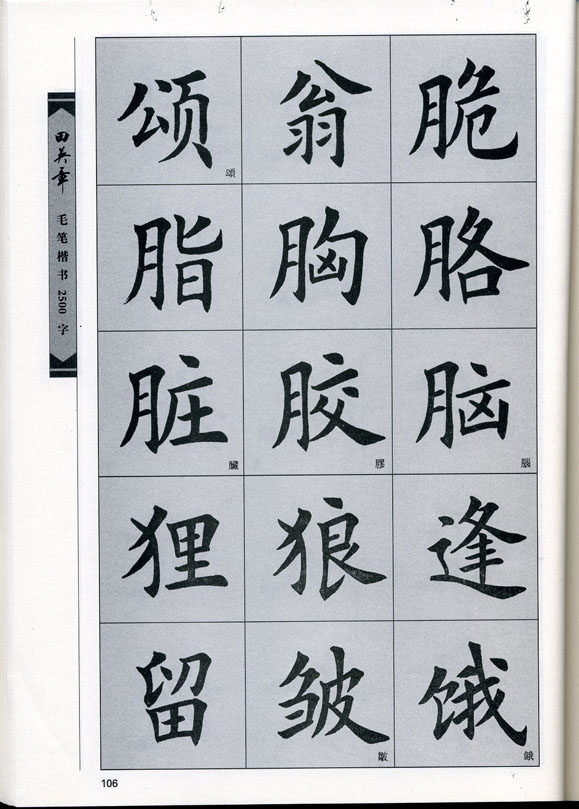 田英章 毛笔楷书2500字
颂 頌 翁 脆
脂 胸 胳
脏 臟 胶 膠 脑 腦
狸 狼 逢
留 皱 皺 饿 餓
106